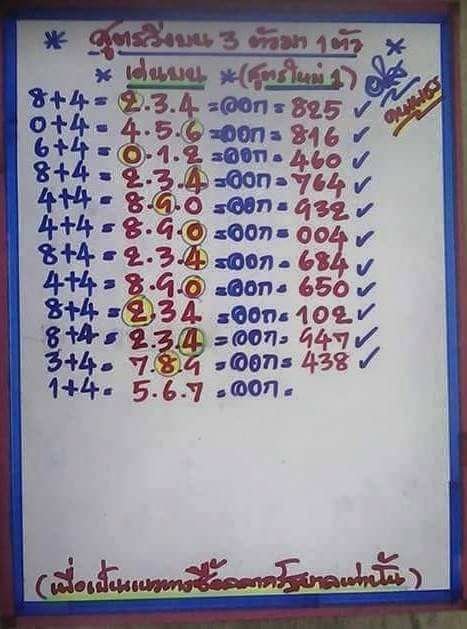 * สูตรวิ่งบน 3 ตัวมา 1 ตัว *
* เด่นบน * (สูตรใหม่ 1)
8+4= 2.3.4 =ออก= 825 ✓
0+4= 4.5.6 =ออก= 816 ✓
6+4= 0.1.2 =ออก= 460 ✓
8+4= 2.3.4 =ออก= 764 ✓
4+4= 8.9.0 =ออก= 932 ✓
4+4= 8.9.0 =ออก= 004 ✓
8+4= 2.3.4 =ออก= 684 ✓
4+4= 8.9.0 =ออก= 650 ✓
8+4= 2.34 =ออก= 102 ✓
8+4= 2.3.4 =ออก= 947 ✓
3+4= 7.89 =ออก= 438 ✓
1+4= 5.6.7 =ออก=
(เพื่อเป็นแนวทางซื้อสลากรัฐบาลเท่านั้น)